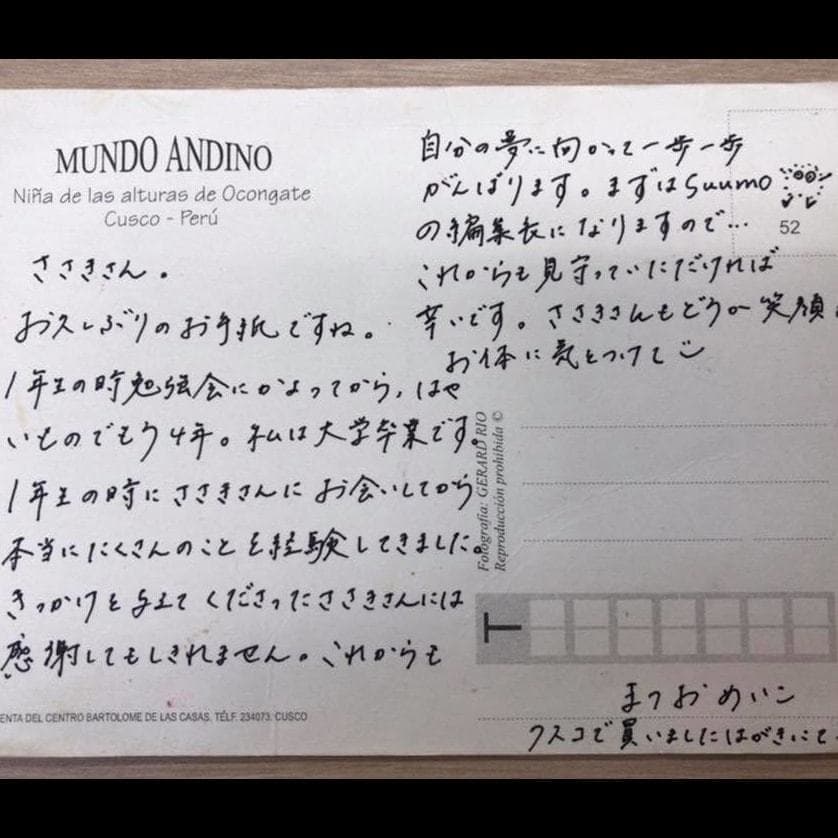 MUNDO ANDINO
Niña de las alturas de Ocongate
Cusco - Perú
ささきさん。
お久しぶりのお手紙ですね。
1年生の時勉強会にかよってから、はや
いものでもう4年。私は大学卒業です。
1年生の時にささきさんにお会いしてから
本当にたくさんのことを経験してきました。
きっかけを与えてくださったささきさんには
感謝してもしきれません。これからも
自分の夢に向かって一歩一歩
がんばります。まずはSuumo
の編集長になりますので…
これからも見守っていただければ
幸いです。ささきさんもどうか笑顔
お体に気をつけて
52
Fotografía: GERARD RIO
Reproducción prohibida ©
〒
まつおめいこ
クスコで買いましたはがきにて
ENTA DEL CENTRO BARTOLOME DE LAS CASAS. TÉLF. 234073. CUSCO